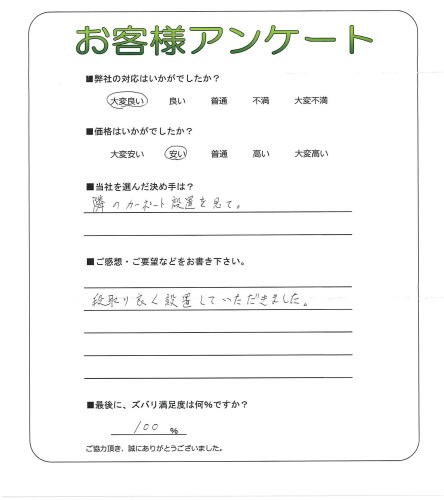 お客様アンケート
■弊社の対応はいかがでしたか？
大変良い 良い 普通 不満 大変不満
■価格はいかがでしたか？
大変安い 安い 普通 高い 大変高い
■当社を選んだ決め手は？
隣のカーポート設置を見て。
■ご感想・ご要望などをお書き下さい。
段取り良く設置していただきました。
■最後に、ズバリ満足度は何％ですか？
100 ％
ご協力頂き、誠にありがとうございました。